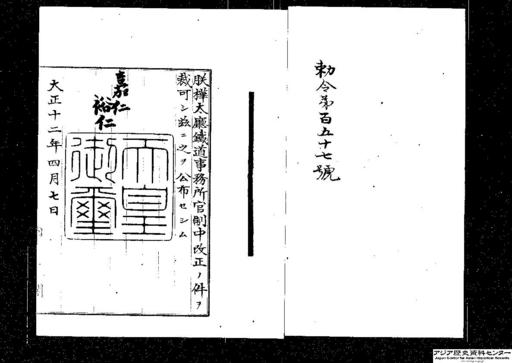 勅令第百五十七號
朕樺太廳鐵道事務所官制中改正ノ件ヲ
裁可シ茲ニ之ヲ公布セシム
嘉仁
裕仁
天皇
御璽
大正十二年四月七日
アジア歴史資料センター
Japan Center for Asian Historical Records